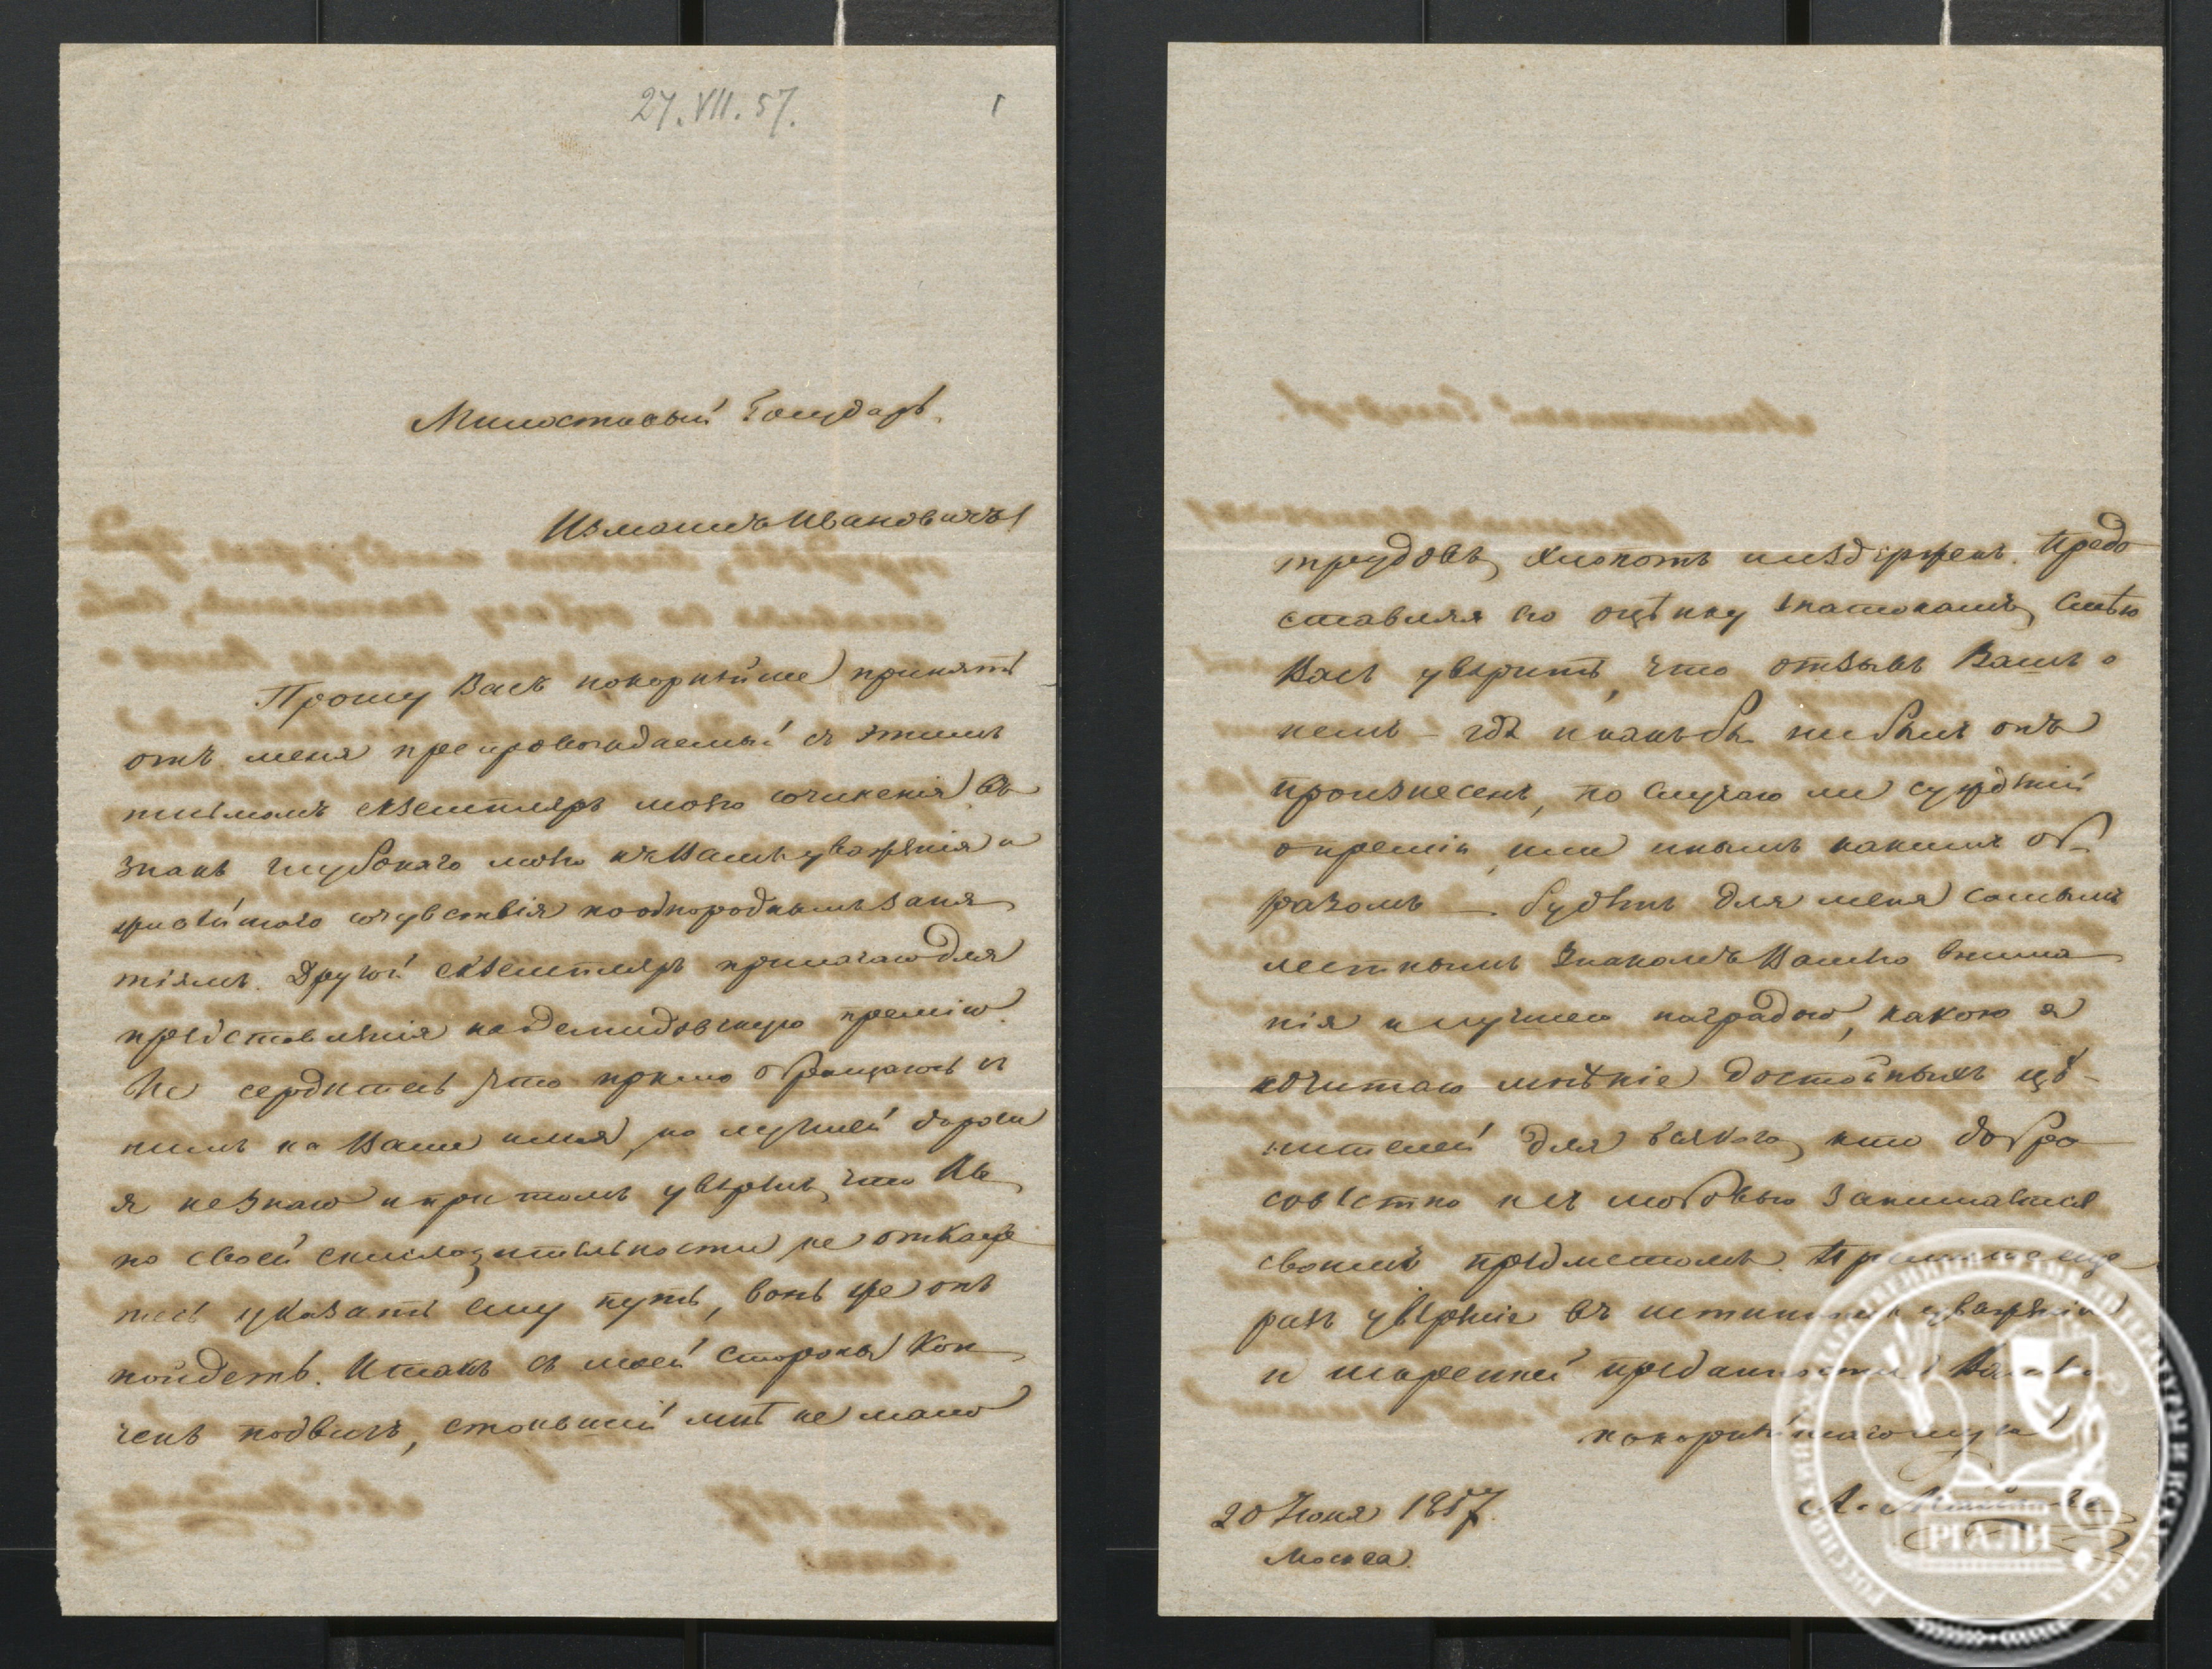 27.VII.57.
1
Милостивый Государь,
Измаилъ Ивановичъ!
Прошу Васъ покорнѣйше принять
отъ меня препровождаемый съ этимъ
письмомъ екземпляръ моего сочиненія въ
знакъ глубокаго моего къ Вамъ уваженія и
живѣйшаго сочувствія по однороднымъ заня
тіямъ. Другой екземпляръ прилагаю для
представленія на демидовскую премію.
Не сердитесь, что прямо обращаюсь съ
нимъ на Ваше имя, но лучшей дороги
я не знаю и при томъ увѣренъ, что Вы
по своей снисходительности не откаже
тесь указать ему путь, вонь же онъ
пойдетъ. Итакъ съ моей стороны кон
ченъ подвигъ, стоившій мнѣ не мало
трудовъ, хлопотъ и издержекъ. Предо
ставляя его оцѣнку знатокамъ, смѣю
Васъ увѣрить, что отзывъ Вашъ о
немъ – гдѣ и какъ бы ни былъ онъ
произнесенъ, по случаю ли сужденій
о преміи или инымъ какимъ об-
разомъ – будетъ для меня самымъ
лестнымъ знакомъ Вашего внима
нія и лучшею наградою, какою я
почитаю мнѣніе достойныхъ цѣ-
нителей для всякаго, кто добро
совѣстно и съ любовью занимается
своимъ предметомъ. Примите еще
разъ увѣреніе въ истинномъ уваженіи
и искренней преданности Вашего
покорнѣйшаго слуги
А.
20 Іюня 1857.
Москва.
РГАЛИ